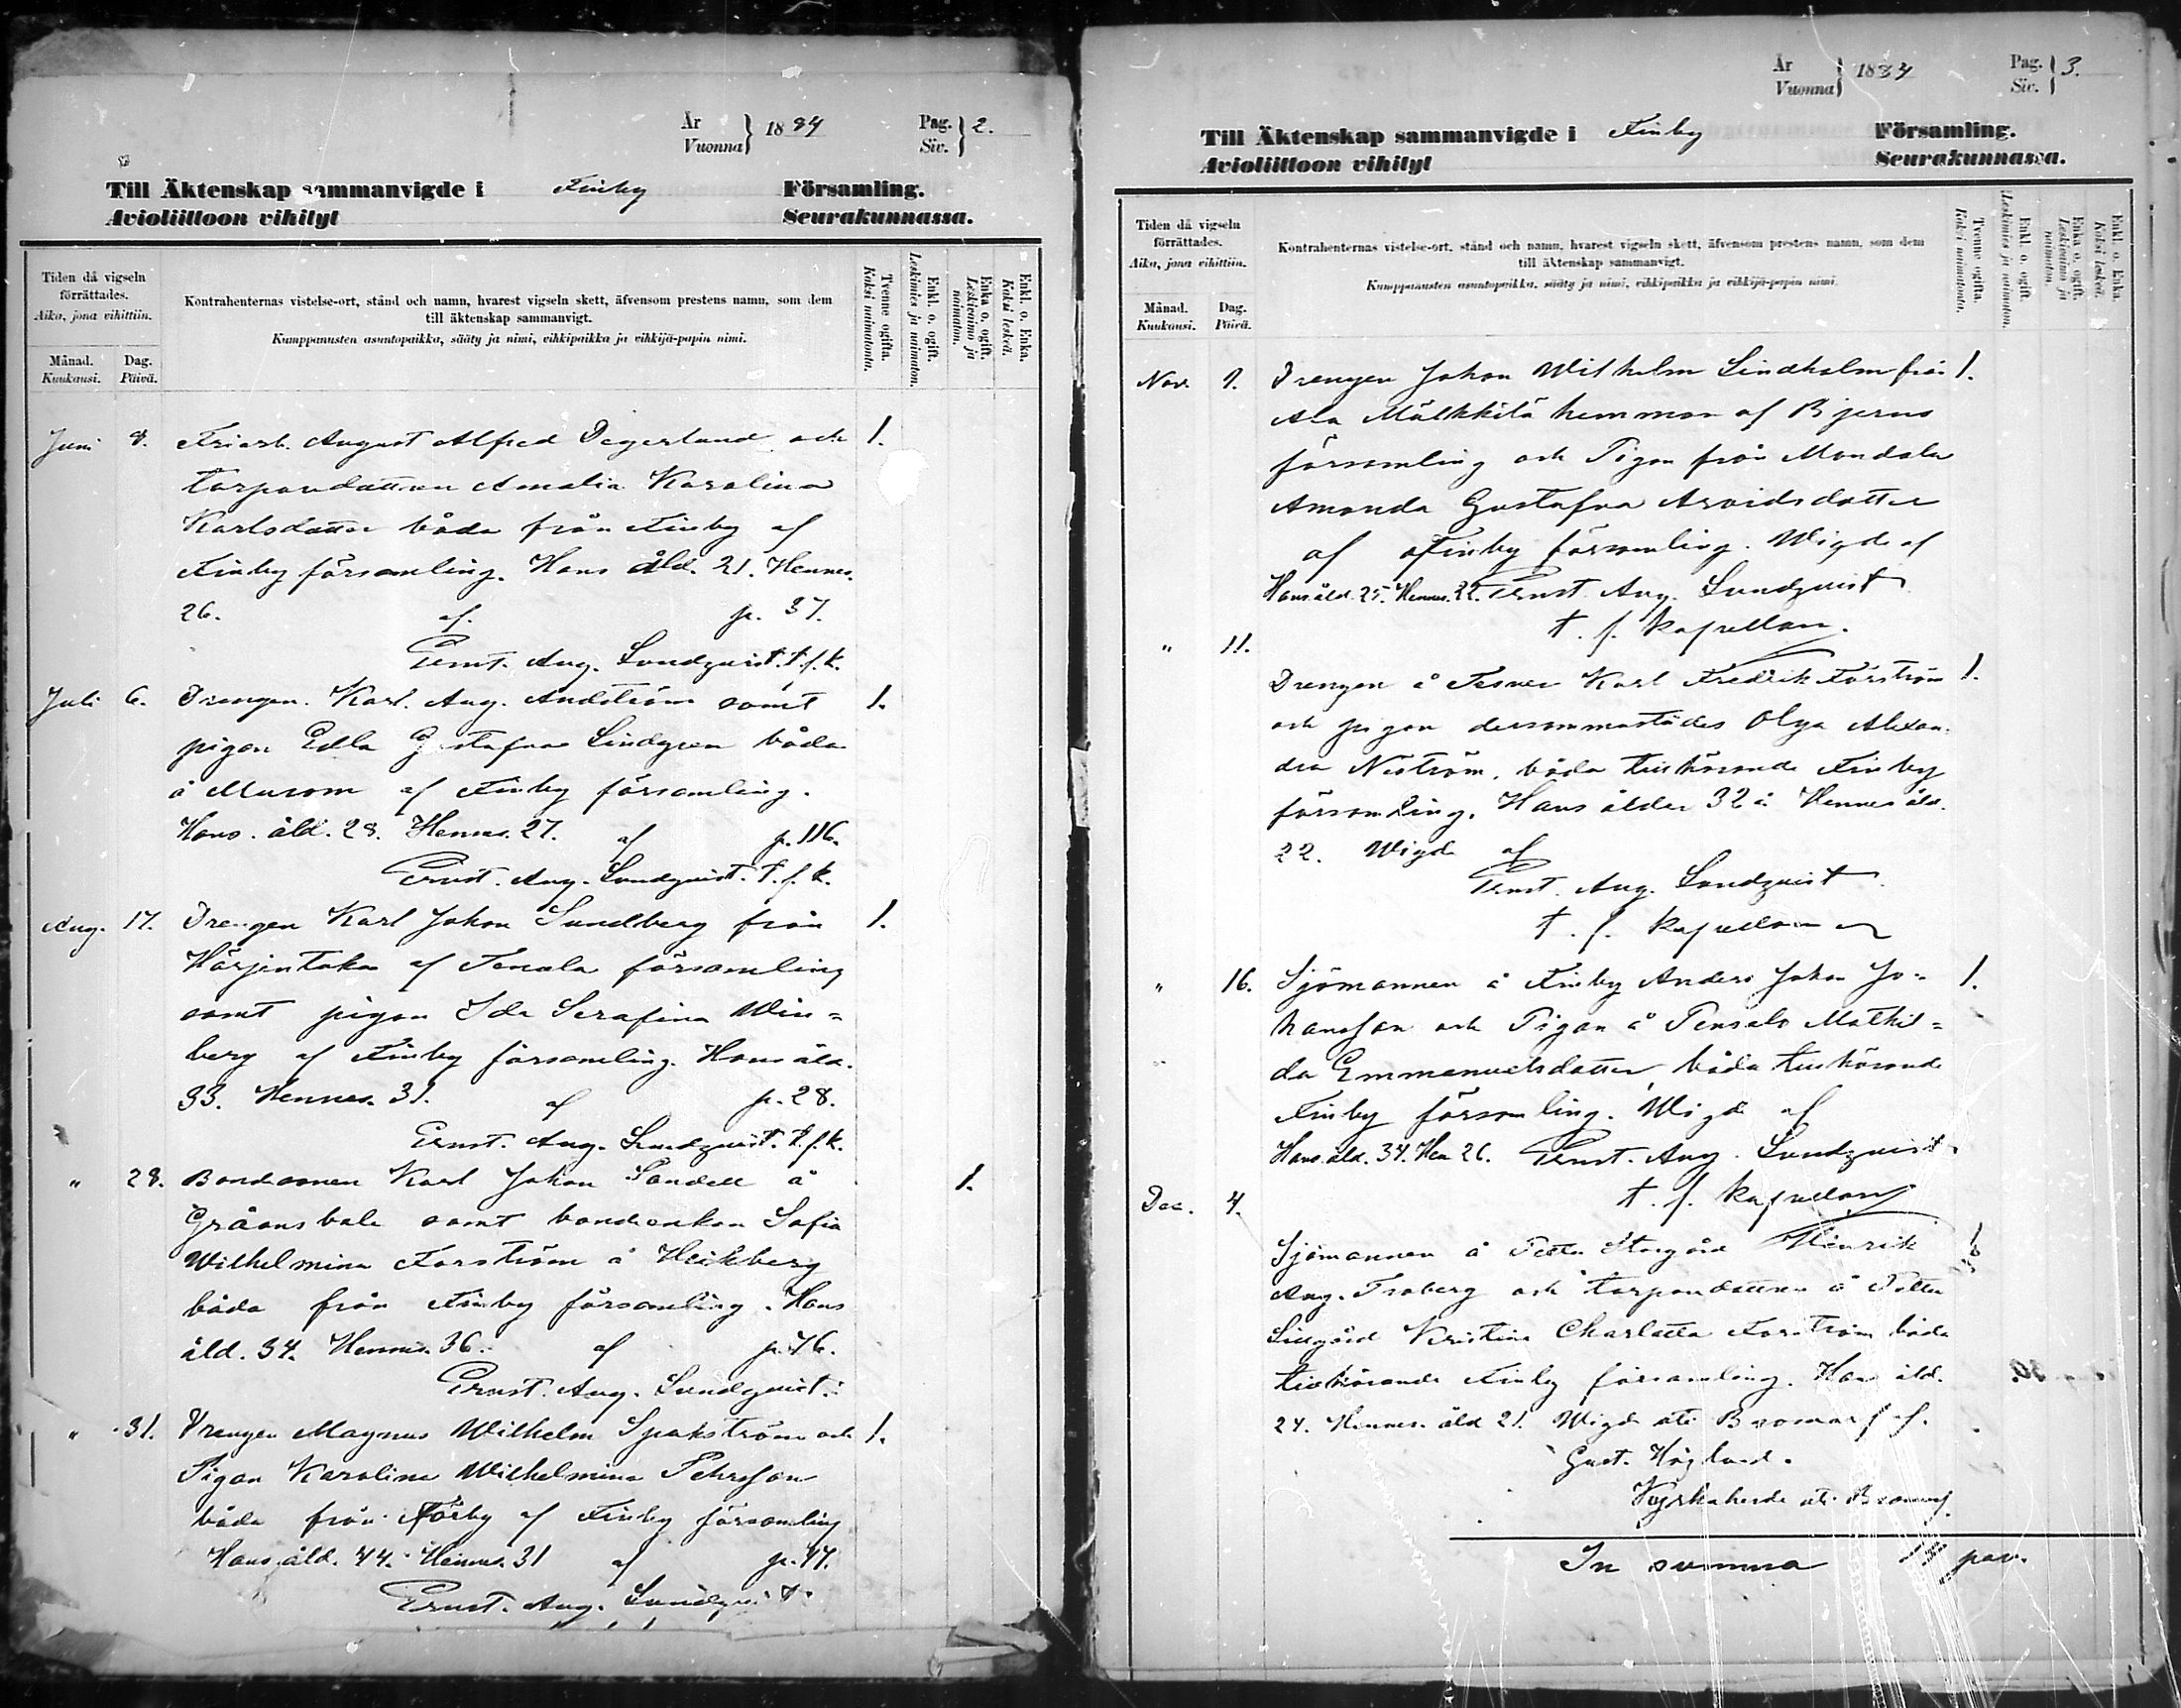 År
Vuonna } 1884 Pag.
Siv. } 2.
Till Äktenskap sammanvigde i Finby Församling.
Avioliittoon vihityt Seurakunnassa.
Tiden då vigseln
förrättades.
Aika, jona vihittiin.
Månad.
Kuukausi.
Dag.
Päivä.
Kontrahenternas vistelse-ort, stånd och namn, hvarest vigseln skett, äfvensom prestens namn, som dem
till äktenskap sammanvigt.
Kumppanusten asuntopaikka, sääty ja nimi, vihkipaikka ja vihkijä-papin nimi.
Tvenne ogifta.
Kaksi naimatonta.
Enkl. o. ogift.
Leskimies ja naimaton.
Enka o. ogift.
Leskivaimo ja
naimaton.
Enkl. o. Enka.
Kaksi leskeä.
Juni 8. August Alfred Degerlund och 1.
torpardottren Amalia Karolina
Karlsdotter båda från Finby af
Finby församling. Hans åld. 21. Hennes.
26. af. p. 37.
Ernst. Aug. Sundqvist. t.f.k.
Juli 6. Drengen. Karl. Aug. Andström samt 1.
pigan Edla Gustafva Lindgren båda
å Murom af Finby församling.
Hans. åld. 28. Hennes. 27. af p. 116.
Ernst. Aug. Sundqvist. t.f.k.
Aug. 17. Drengen Karl Johan Sundberg från 1.
Härjentaka af Tenala församling
samt pigan Ida Serafina Win=
berg af Finby församling. Hans åld.
33. Hennes. 31. af p. 28.
Ernst. Aug. Sundqvist. t.f.k.
" 28. Bondesonen Karl Johan Sandell å 1.
samt bondenkan Sofia
Wilhelmina Forström å
båda från Finby församling. Hans
åld. 34. Hennes. 36. af p. 76.
Ernst. Aug. Sundqvist.
" 31. Drengen Magnus Wilhelm Spakström och 1.
Pigan Karolina Wilhelmina Pehrsson
båda från Förby af Finby församling
Hans åld. 44. Hennes. 31 af p. 47.
Ernst. Aug. Sundqvist.
År
Vuonna } 1884 Pag.
Siv. } 3.
Till Äktenskap sammanvigde i Finby Församling.
Avioliittoon vihityt Seurakunnassa.
Tiden då vigseln
förrättades.
Aika, jona vihittiin.
Månad.
Kuukausi.
Dag.
Päivä.
Kontrahenternas vistelse-ort, stånd och namn, hvarest vigseln skett, äfvensom prestens namn, som dem
till äktenskap sammanvigt.
Kumppanusten asuntopaikka, sääty ja nimi, vihkipaikka ja vihkijä-papin nimi.
Tvenne ogifta.
Kaksi naimatonta.
Enkl. o. ogift.
Leskimies ja naimaton.
Enka o. ogift.
Leskivaimo ja
naimaton.
Enkl. o. Enka.
Kaksi leskeä.
Nov. 9. Drengen Johan Wilhelm Lindholm från 1.
Ala Mälkkilä hemman af Bjerno
församling och Pigan från Mondola
Amanda Gustafva Arvidsdotter
af Finby församling. Wigde af
Hans åld. 25. Hennes. 22. Ernst. Aug. Sundqvist
t. f. kapellan.
" 11.
Drengen å Karl Fredrik Forström 1.
och pigan dersammastädes Olga Alexan-
dra Niström, båda tillhörande Finby
församling. Hans ålder 32 å Hennes åld.
22. Wigde af
Ernst. Aug. Sundqvist
t. f. kapellan
" 16. Sjömannen å Finby Anders Johan Jo= 1.
hansson och Pigan å Pensalo Mathil=
da Emmanuelsdotter, båda tillhörande
Finby församling. Wigde af
Hans åld. 34. Hen 26. Ernst. Aug. Sundqvist.
t. f. kapellan
Dec. 4.
Sjömannen å Petter Storgård Henrik 1
Aug. Troberg och torpardottren å
Lillgård Kristina Charlotta Forström båda
tillhörande Finby församling. Hans åld.
24. Hennes. åld 21. Wigde uti Bromarf af.
Gust. Höglund.
Kyrkoherde uti Bromarf.
In summa par.